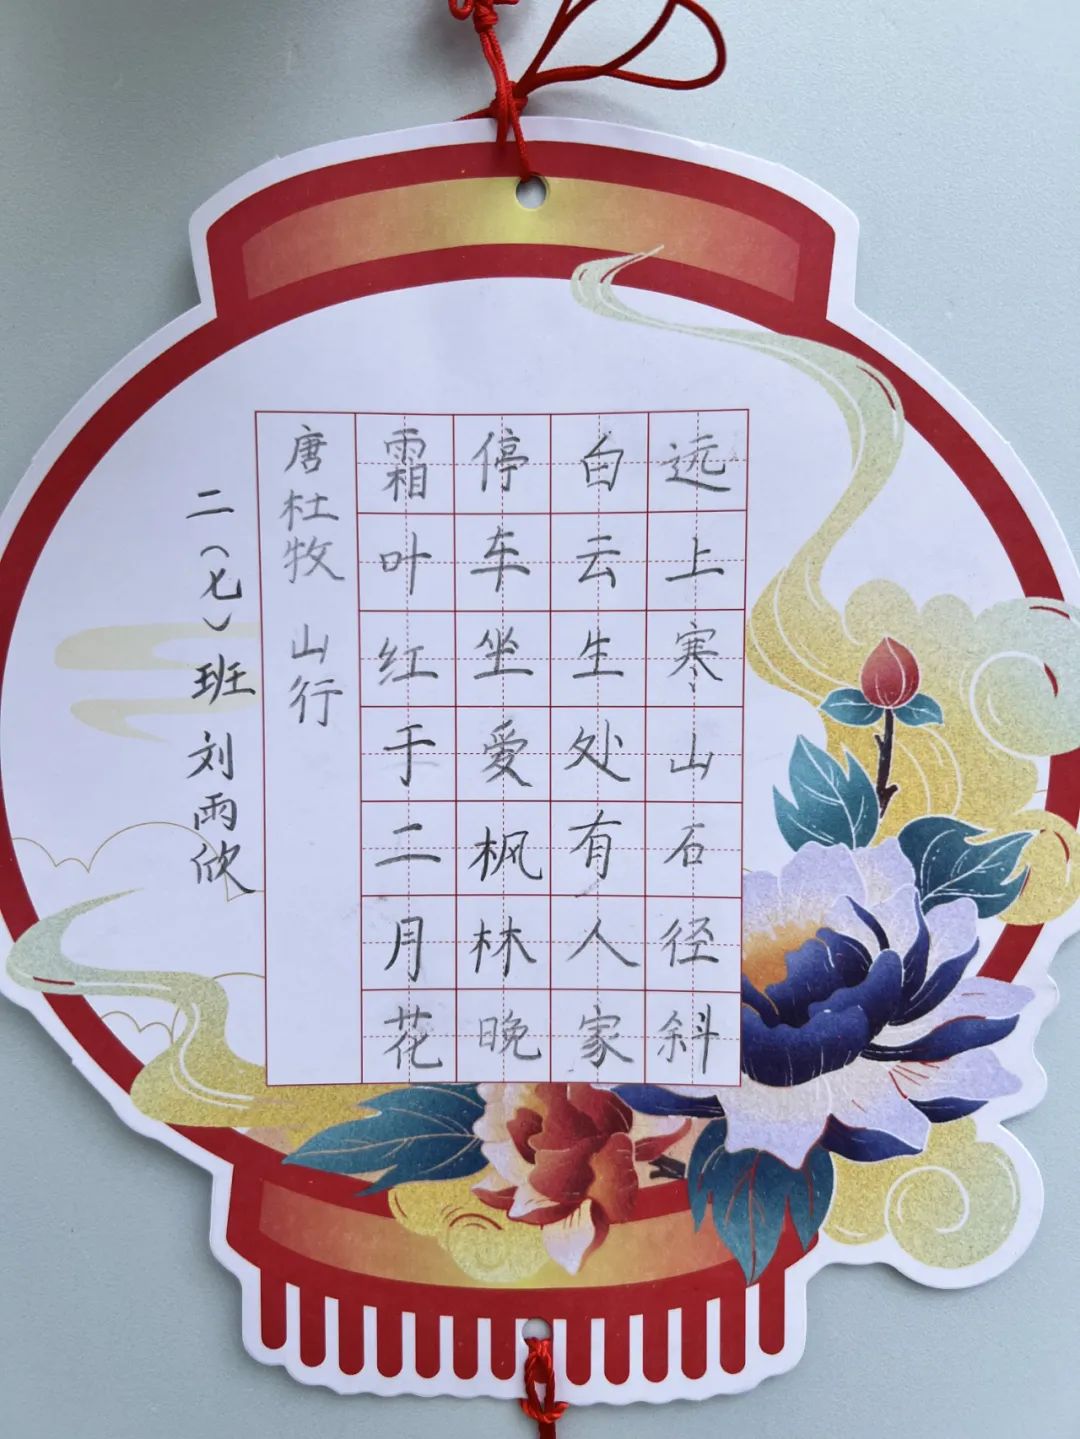 远上寒山石径斜
白云生处有人家
停车坐爱枫林晚
霜叶红于二月花
唐杜牧 山行
二(七)班 刘雨欣